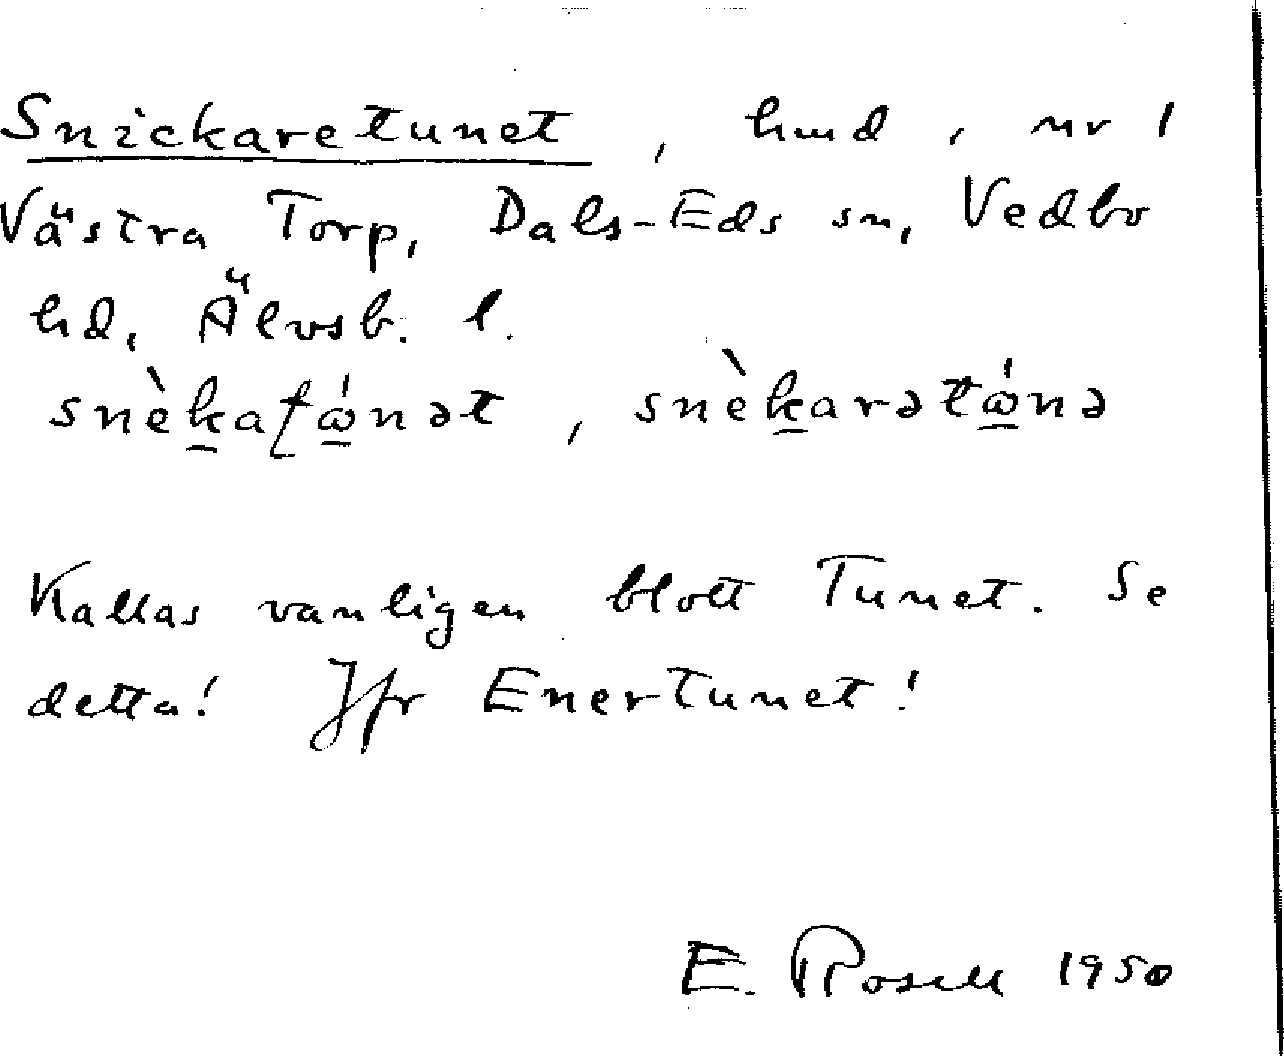 Snickaretunet, hmd, nr 1
Västra Torp, Dals-Eds sn, Vedbo
hd, Älvsb. l.
snèk̲aʈώ̲nət, snèk̲arətώ̲nə
Kallas vanligen blott Tunet. Se
detta! Jfr Enertunet!
E. Rosell 1950